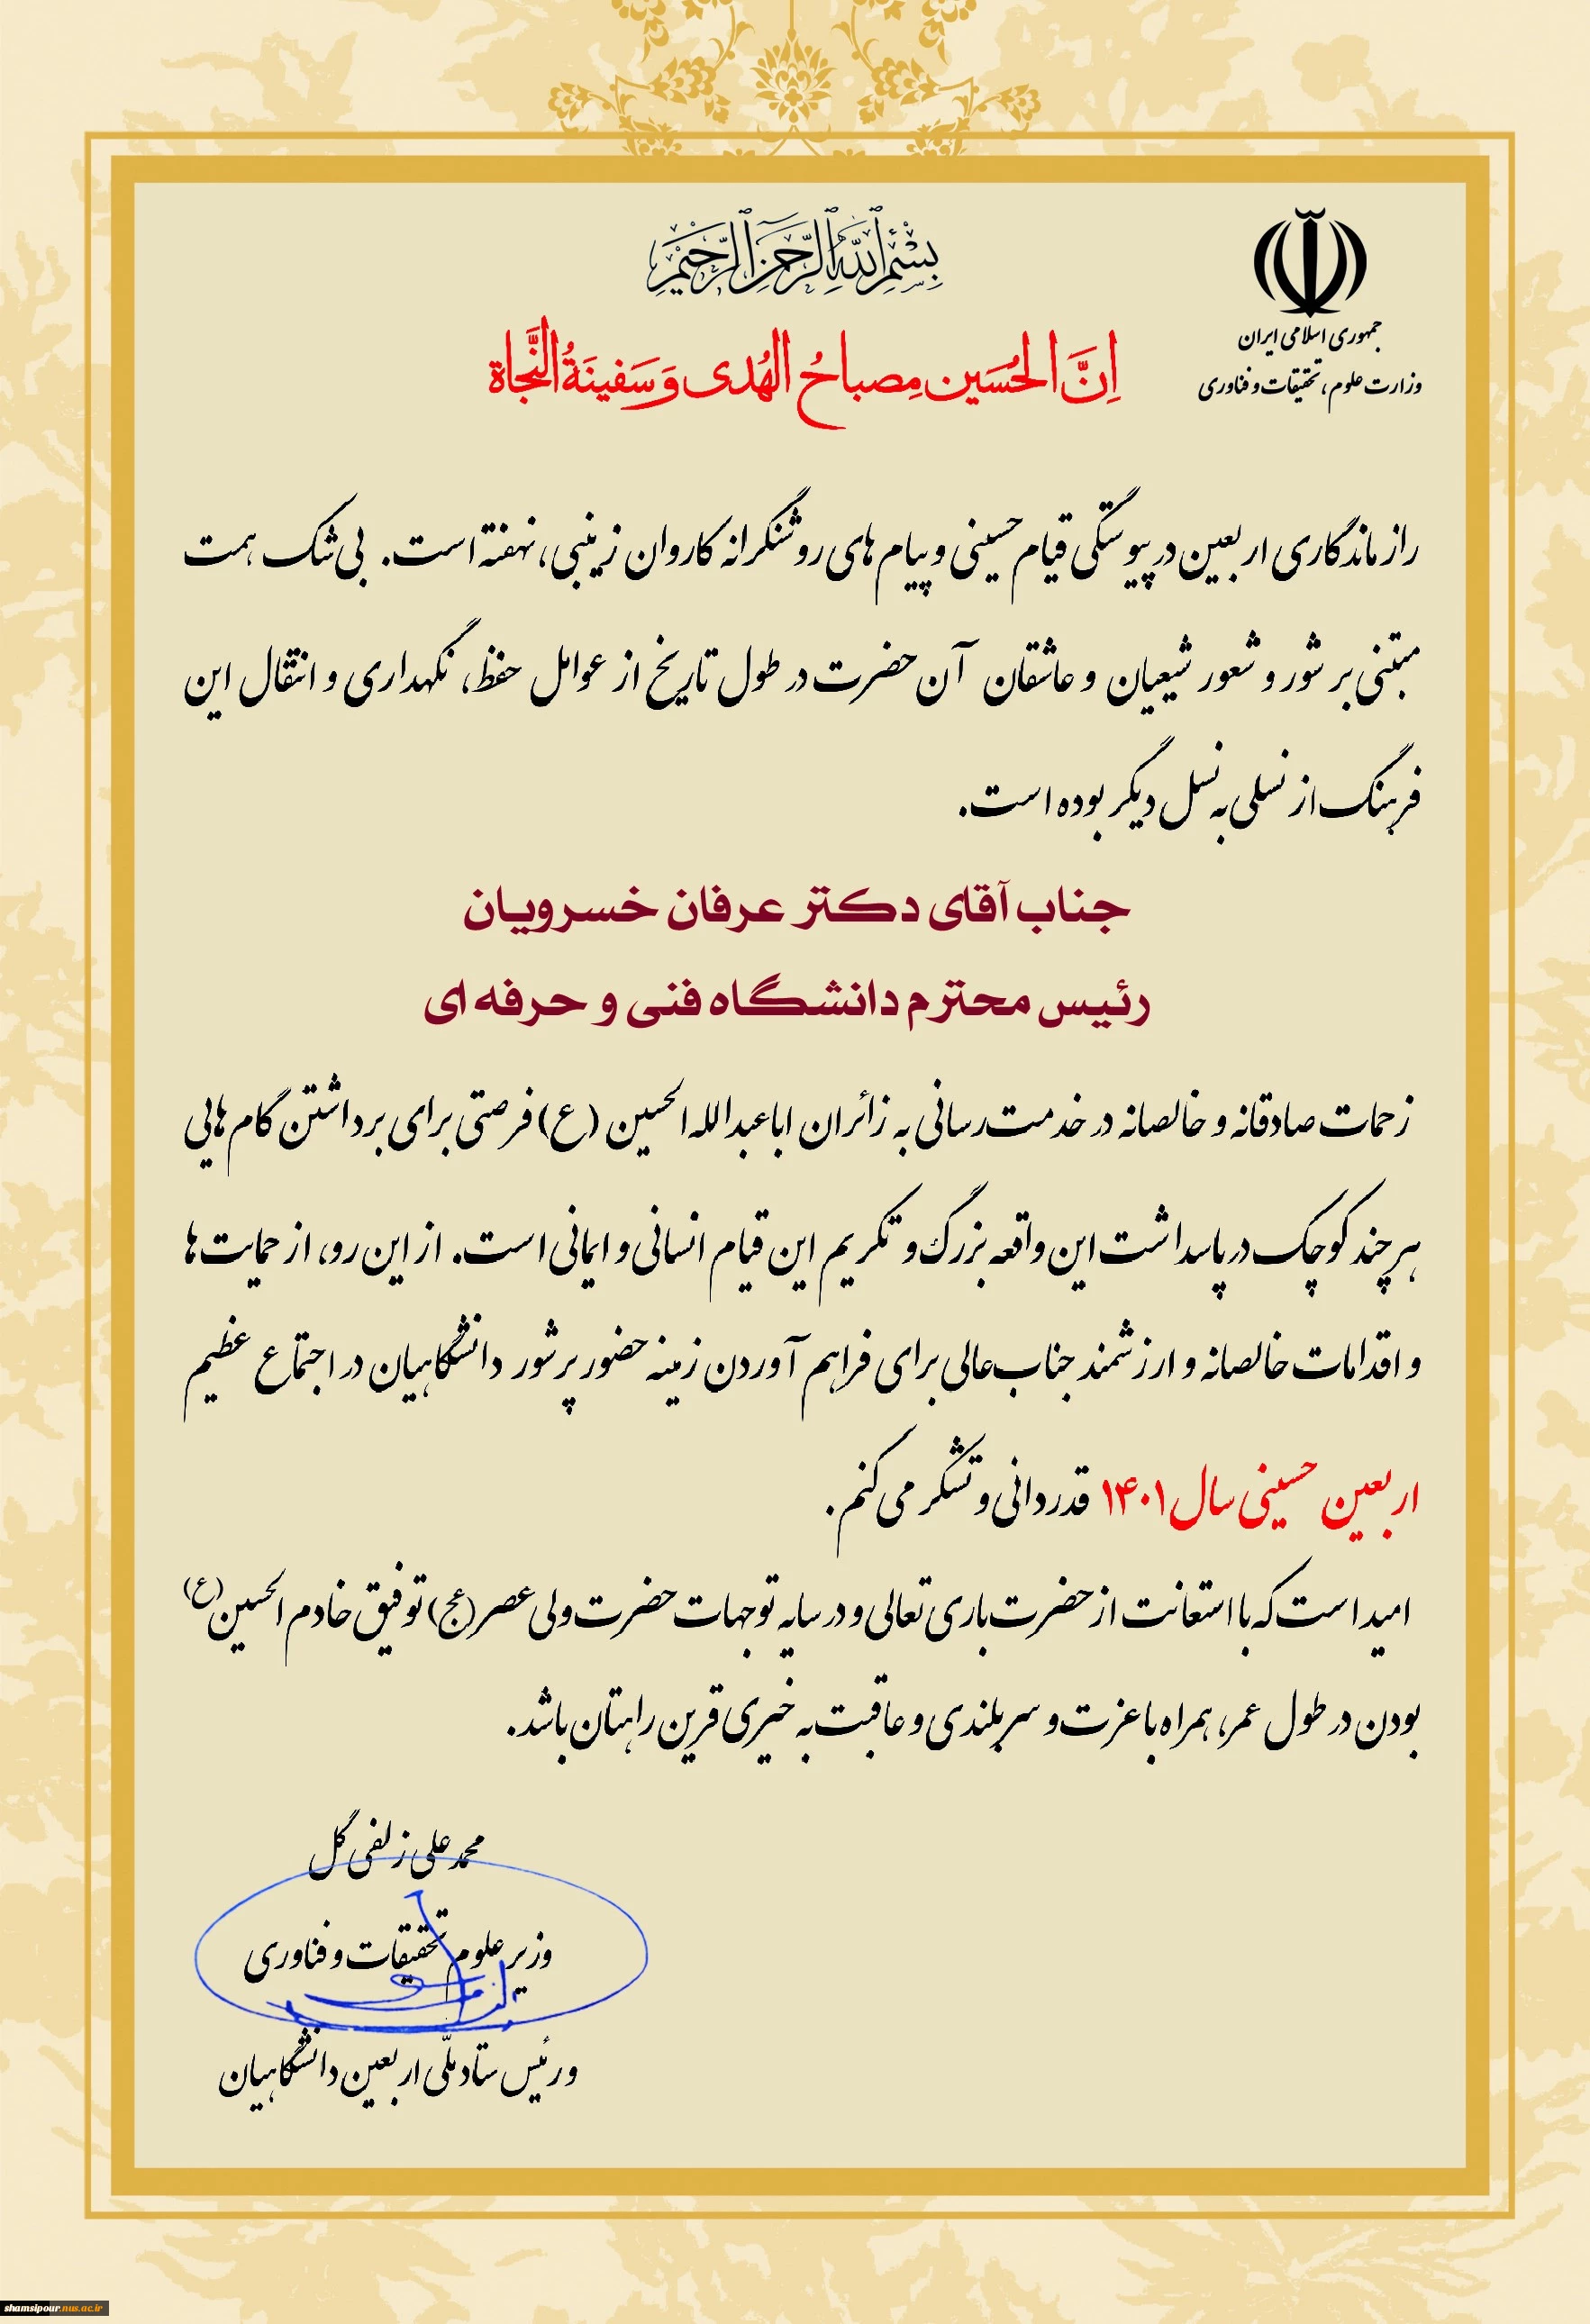 بِسْمِ اللَّهِ الرَّحْمَنِ الرَّحِيمِ
جمهوری اسلامی ایران
وزارت علوم، تحقیقات و فناوری
اِنَّ الحُسَین مِصباحُ الهُدی وَ سَفینَةُ النَّجاة
راز ماندگاری اربعین در پیوستگی قیام حسینی و پیام های روشنگرانه کاروان زینبی، نهفته است. بی شک همت
مبتنی بر شور و شعور شیعیان و عاشقان آن حضرت در طول تاریخ از عوامل حفظ، نگهداری و انتقال این
فرهنگ از نسلی به نسل دیگر بوده است.
جناب آقای دکتر عرفان خسرویان
رئیس محترم دانشگاه فنی و حرفه ای
زحمات صادقانه و خالصانه در خدمت رسانی به زائران اباعبدالله الحسین (ع) فرصتی برای برداشتن گام هایی
هر چند کوچک در پاسداشت این واقعه بزرگ و تکریم این قیام انسانی و ایمانی است. از این رو، از حمایت ها
و اقدامات خالصانه و ارزشمند جناب عالی برای فراهم آوردن زمینه حضور پرشور دانشگاهیان در اجتماع عظیم
اربعین حسینی سال ۱۴۰۱ قدردانی و تشکر می کنم.
امید است که با استعانت از حضرت باری تعالی و در سایه توجهات حضرت ولی عصر (عج) توفیق خادم الحسین (ع)
بودن در طول عمر، همراه با عزت و سربلندی و عاقبت به خیری قرین راهتان باشد.
محمد علی زلفی گل
وزیر علوم تحقیقات و فناوری
و رئیس ستاد ملّی اربعین دانشگاهیان
shamsipour.nus.ac.ir